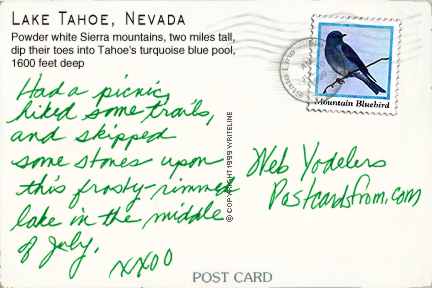 LAKE TAHOE, NEVADA
Powder white Sierra mountains, two miles tall,
dip their toes into Tahoe's turquoise blue pool,
1600 feet deep
Had a picnic,
hiked some trails,
and skipped
some stones upon
this frosty-rimmed
lake in the middle
of July.
XXOO
© COPYRIGHT 1999 WRITELINE
Mountain Bluebird
Web Yodelers
Postcardsfrom.com
POST CARD